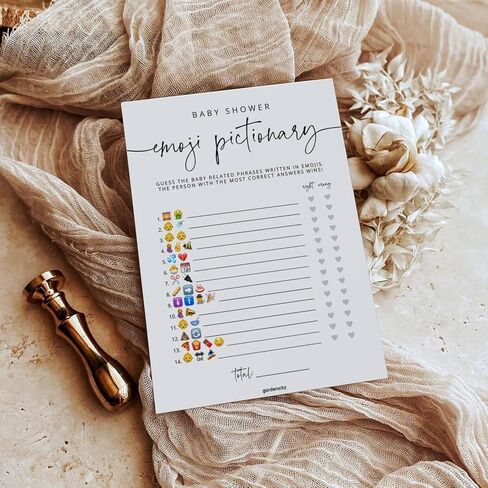 BABY SHOWER
emoji pictionary
GUESS THE BABY RELATED PHRASES WRITTEN IN EMOJIS.
THE PERSON WITH THE MOST CORRECT ANSWERS WINS!
right wrong
1.
2.
3.
4.
5.
6.
7.
8.
9.
10.
11.
12.
13.
14.
total:
gardencity